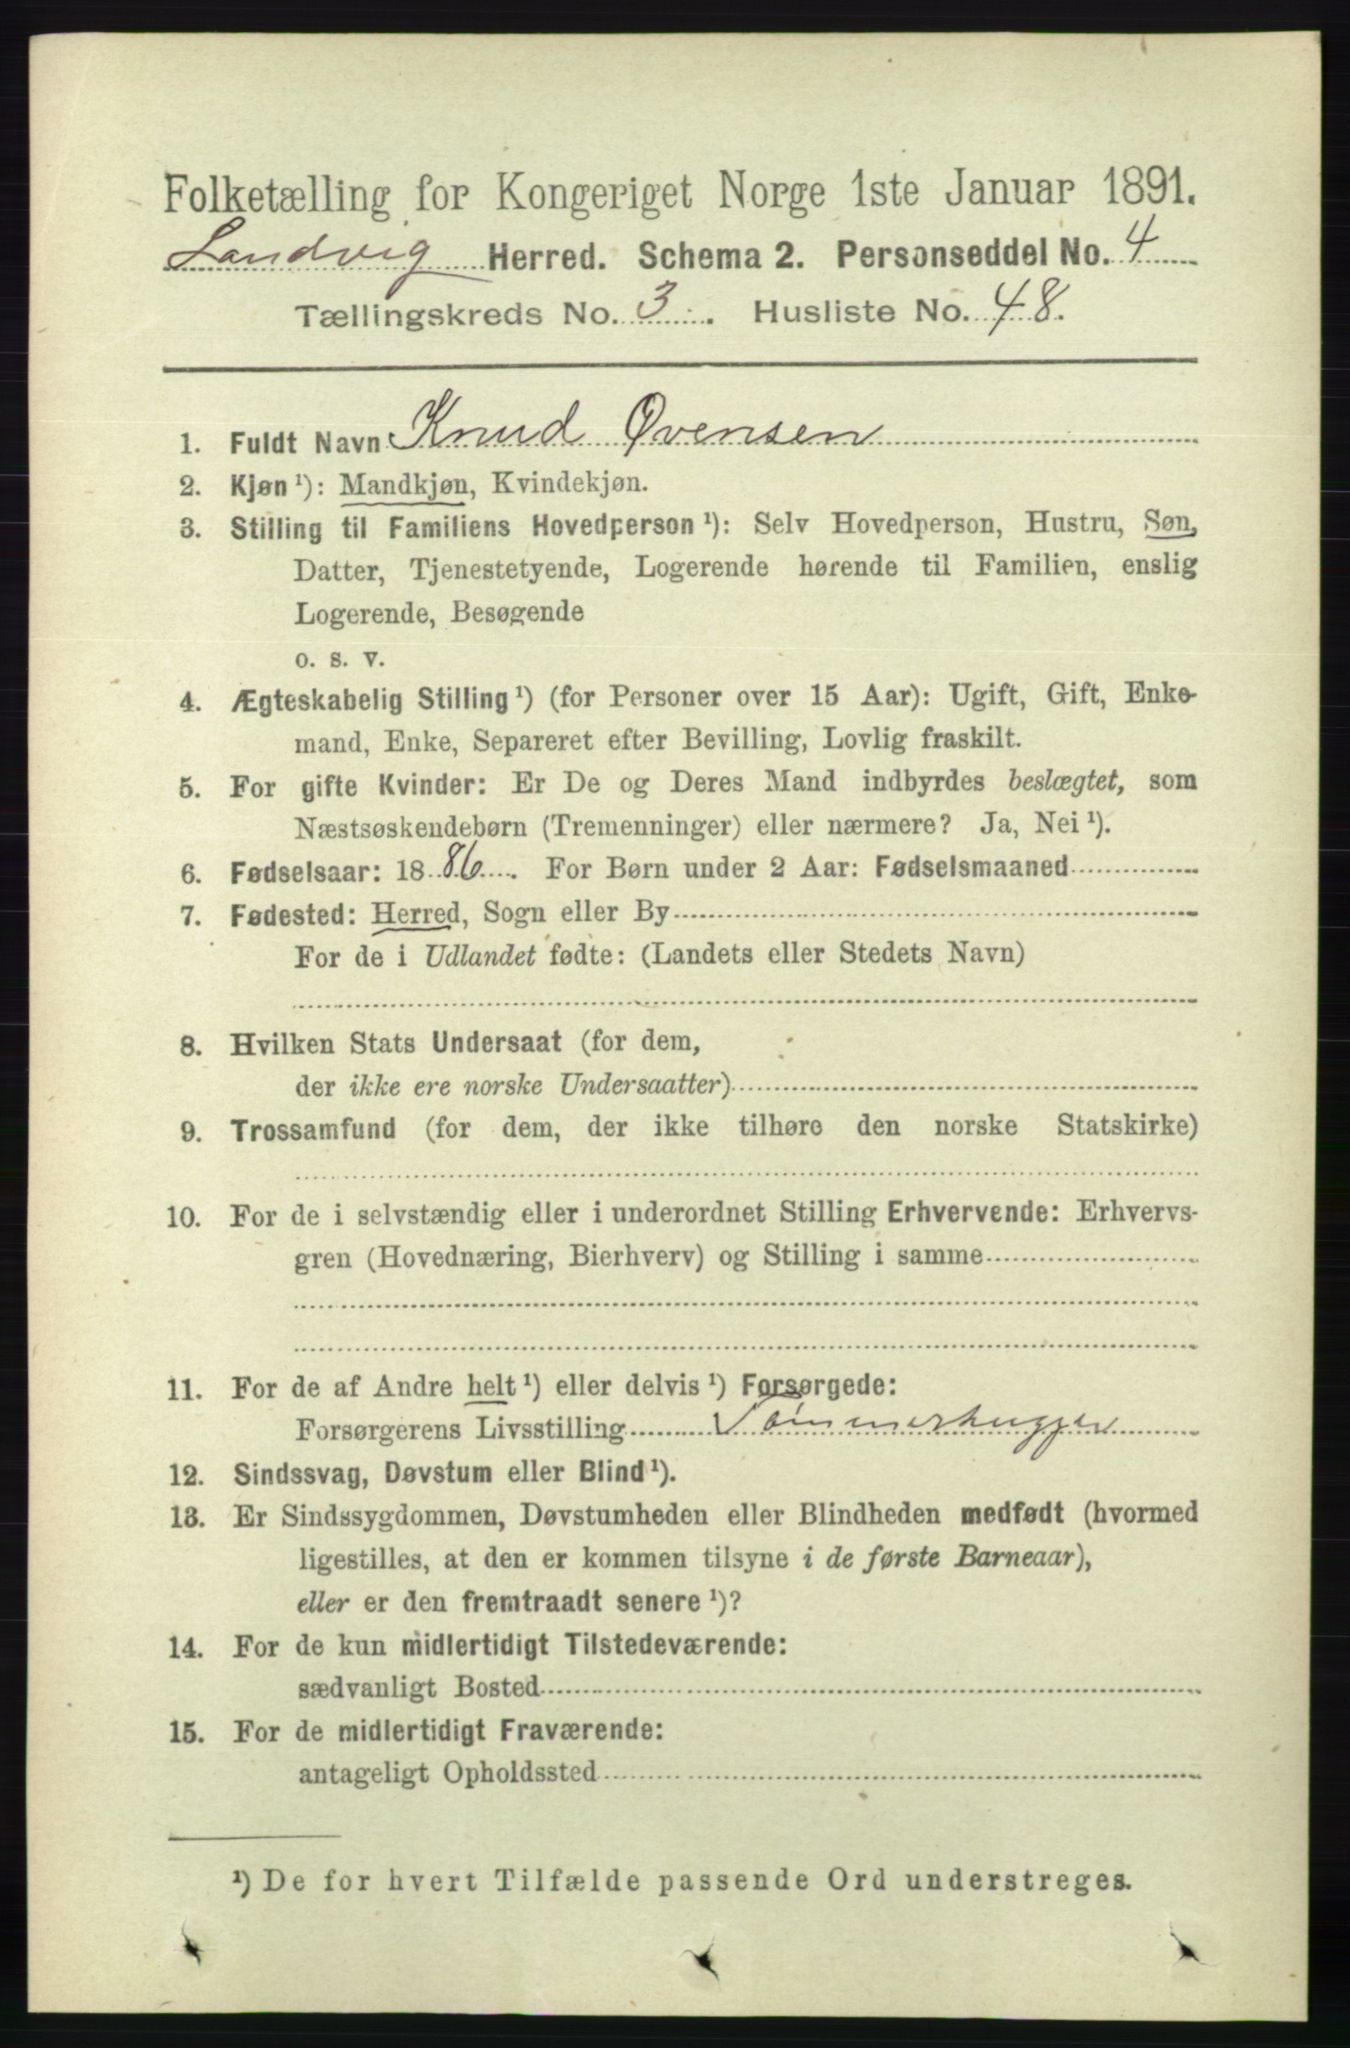 Folketælling for Kongeriget Norge 1ste Januar 1891.
Landvig Herred. Schema 2. Personseddel No. 4
Tællingskreds No. 3. Husliste No. 48.
1. Fuldt Navn Knud Øvensen
2. Kjøn ¹): Mandkjøn, Kvindekjøn.
3. Stilling til Familiens Hovedperson ¹): Selv Hovedperson, Hustru, Søn,
Datter, Tjenestetyende, Logerende hørende til Familien, enslig
Logerende, Besøgende
o. s. v.
4. Ægteskabelig Stilling ¹) (for Personer over 15 Aar): Ugift, Gift, Enke-
mand, Enke, Separeret efter Bevilling, Lovlig fraskilt.
5. For gifte Kvinder: Er De og Deres Mand indbyrdes beslægtet, som
Næstsøskendebørn (Tremenninger) eller nærmere? Ja, Nei ¹).
6. Fødselsaar: 1886. For Børn under 2 Aar: Fødselsmaaned
7. Fødested: Herred, Sogn eller By
For de i Udlandet fødte: (Landets eller Stedets Navn)
8. Hvilken Stats Undersaat (for dem,
der ikke ere norske Undersaatter)
9. Trossamfund (for dem, der ikke tilhøre den norske Statskirke)
10. For de i selvstændig eller i underordnet Stilling Erhvervende: Erhvervs-
gren (Hovednæring, Bierhverv) og Stilling i samme
11. For de af Andre helt ¹) eller delvis ¹) Forsørgede:
Forsørgerens Livsstilling Tømmerhugger
12. Sindssvag, Døvstum eller Blind ¹).
13. Er Sindssygdommen, Døvstumheden eller Blindheden medfødt (hvormed
ligestilles, at den er kommen tilsyne i de første Barneaar),
eller er den fremtraadt senere ¹)?
14. For de kun midlertidigt Tilstedeværende:
sædvanligt Bosted
15. For de midlertidigt Fraværende:
antageligt Opholdssted
¹) De for hvert Tilfælde passende Ord understreges.